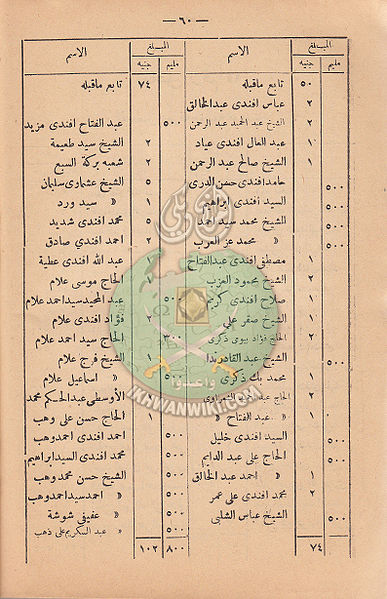 — ٦٠ —
الاسم المبلغ الاسم المبلغ
جنيه مليم جنيه مليم
تابع ماقبله ٥٠
عباس افندى عبد الخالق ٢
الشيخ عبد الحميد عبد الرحمن ٢
عبد العال افندى عباد ١٠
الشيخ صالح عبد الرحمن ١
حامد افندى حسن الدرى ٥٠٠
السيد افندى ابراهيم ٥٠٠
الشيخ محمد سيد احمد ٥٠٠
« محمد عز العرب ٥٠٠
مصطفى افندى عبد الفتاح ١
الشيخ محمود العزب ٢
صلاح افندى ١
الشيخ صقر على ١
الحاج فؤاد بيوى ذكرى ٢
الشيخ عبد القادر ٥٠٠
محمد بك ذكرى ١
الحاج عبد
« عبد الفتاح « ١
السيد افندى خليل ٥٠٠
الحاج على عبد الدايم ٥٠٠
« احمد عبد الخالق ١
محمد افندى على عمر ٢
الشيخ عباس الشلبى ٥٠٠
٧٤
تابع ماقبله ٧٤
عبد الفتاح افندى مزيد ٥٠٠
الشيخ سيد طعيمة ٢
شعبه بركة السبع ٢
الشيخ عشماوى سليمان ٥
« سيد ورد ١
محمد افندى شديد ٥
احمد افندى صادق ٢
عبد الله افندى عطية ١
الحاج موسى علام
عبد المجيد سيد احمد علام ٥٠٠
فؤاد افندى علام ٢
الحاج سيد احمد علام
الشيخ فرج علام ١
« اسماعيل علام ٥٠٠
الأوسطى عبد الحكم محمد
الحاج حسن على وهب
احمد افندى احمد وهب ٥٠٠
محمد افندى السيد ابراهيم ٥٠٠
الشيخ حسن محمد وهب ٥٠٠
« احمد سيد احمد وهب ٥٠٠
« عفيفى شوشة ٥٠٠
« عبد الكريم على ٥٠٠
١٠٢ ٨٠٠
واعدوا
IKHWANWIKI.COM